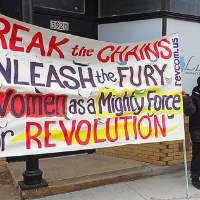 3920
BREAK the CHAINS
UNLEASH the FURY
Women as a Mighty Force
for REVOLUTION
revcom.us